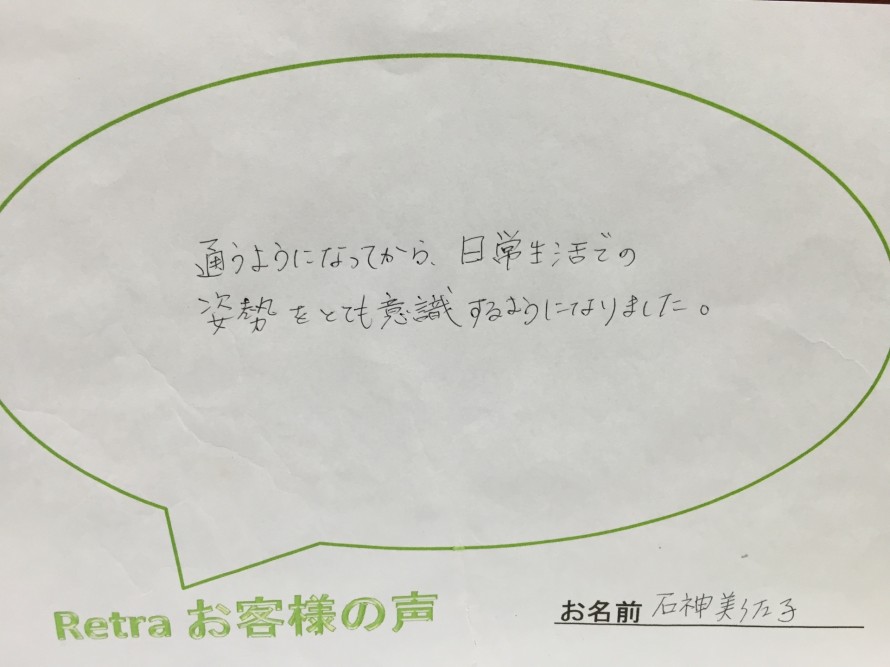 通うようになってから、日常生活での
姿勢をとても意識するようになりました。
Retra お客様の声
お名前 石神美佐子